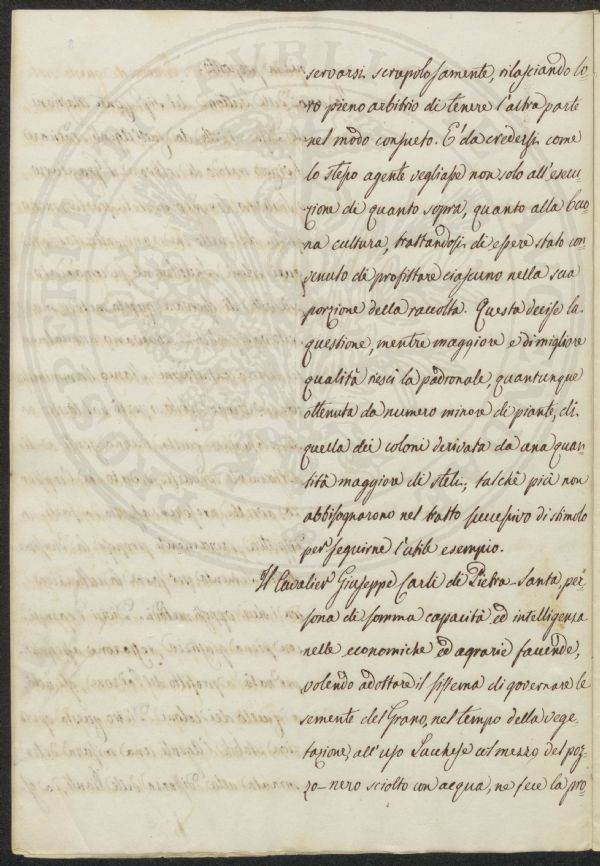 servarsi scrupolosamente, rilasciando lo-
ro pieno arbitrio di tenere l'altra parte
nel modo consueto. E' da credersi come
lo stesso agente vegliasse non solo all'esecu-
zione di quanto sopra, quanto alla buo-
na cultura, trattandosi di essere stato con-
venuto di profittare ciascuno nella sua
porzione della raccolta. Questa decise la
questione, mentre maggiore e di migliore
qualità riescì la padronale, quantunque
ottenuta da numero minore di piante, di
quella dei coloni derivata da una quan-
tità maggiore di steli; talchè più non
abbisognarono nel tratto successivo di stimolo
per seguirne l'utile esempio.
Il Cavalier Giuseppe Carli di Pietra-Santa, per-
sona di somma capacità ed intelligenza
nelle economiche ed agrarie faccende,
volendo adottare il sistema di governare le
semente del Grano, nel tempo della vege-
tazione, all'uso Lucchese col mezzo del poz-
zo-nero sciolto con acqua, ne fece la pro-